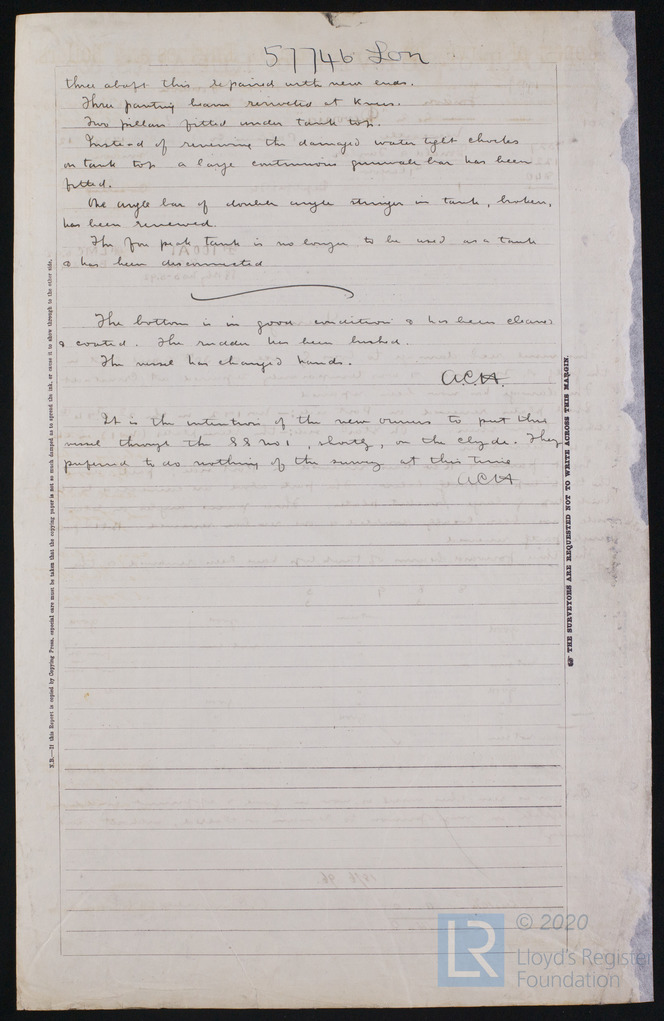 57746 Lon
three abaft this repaired with new ends.
Three panting beams renewed at knees.
Two pillars fitted under tank top.
Instead of renewing the damaged water tight chocks
on tank top a large continuous gunwale bar has been
fitted.
The angle bar of double angle stringer in tank, broken,
has been renewed.
The fore peak tank is no longer to be used as a tank
& has been disconnected
The bottom is in good condition & has been cleaned
& coated. The rudder has been bushed.
The vessel has changed hands.
A.C.H.
It is the intention of the new owners to put this
vessel through the SS No 1, shortly, on the Clyde. They
preferred to do nothing of the survey at this time
ACH
N.B.—If this Report is copied by Copying Press, especial care must be taken that the copying paper is not so much damped as to spread the ink, or cause it to show through to the other side.
THE SURVEYORS ARE REQUESTED NOT TO WRITE ACROSS THIS MARGIN.
LR
© 2020
Lloyd's Register
Foundation